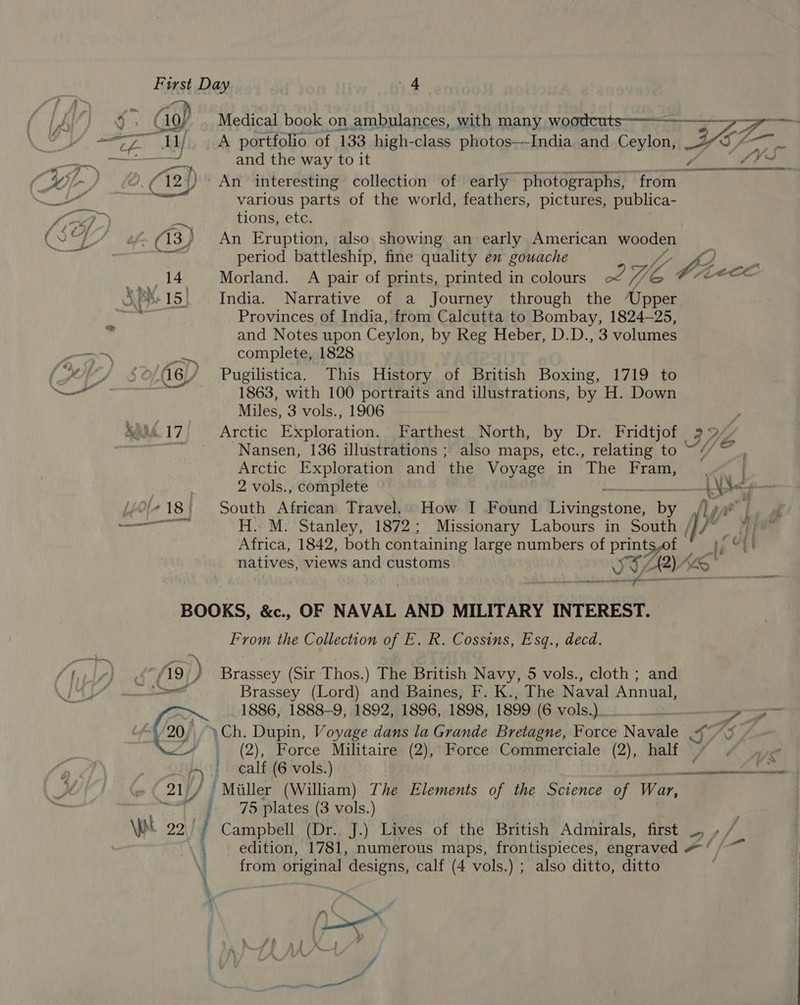 First Day 4
10 Medical book on ambulances, with many woodcuts
11 A portfolio of 133 high-class photos—India and Ceylon,
and the way to it
12 An interesting collection of early photographs, from
various parts of the world, feathers, pictures, publica-
tions, etc.
13 An Eruption, also showing an early American wooden
period battleship, fine quality en gouache
14 Morland. A pair of prints, printed in colours
15 India. Narrative of a Journey through the Upper
Provinces of India, from Calcutta to Bombay, 1824–25,
and Notes upon Ceylon, by Reg Heber, D.D., 3 volumes
complete, 1828
16 Pugilistica. This History of British Boxing, 1719 to
1863, with 100 portraits and illustrations, by H. Down
Miles, 3 vols., 1906
17 Arctic Exploration. Farthest North, by Dr. Fridtjof
Nansen, 136 illustrations ; also maps, etc., relating to
Arctic Exploration and the Voyage in The Fram,
2 vols., complete
18 South African Travel. How I Found Livingstone, by
H. M. Stanley, 1872 ; Missionary Labours in South
Africa, 1842, both containing large numbers of prints of
natives, views and customs (2)
BOOKS, &c., OF NAVAL AND MILITARY INTEREST.
From the Collection of E. R. Cossins, Esq., decd.
19 Brassey (Sir Thos.) The British Navy, 5 vols., cloth ; and
Brassey (Lord) and Baines, F. K., The Naval Annual,
1886, 1888-9, 1892, 1896, 1898, 1899 (6 vols.)
20 Ch. Dupin, Voyage dans la Grande Bretagne, Force Navale
(2), Force Militaire (2), Force Commerciale (2), half
calf (6 vols.)
21 Müller (William) The Elements of the Science of War,
75 plates (3 vols.)
22 Campbell (Dr. J.) Lives of the British Admirals, first
edition, 1781, numerous maps, frontispieces, engraved
from original designs, calf (4 vols.) ; also ditto, ditto